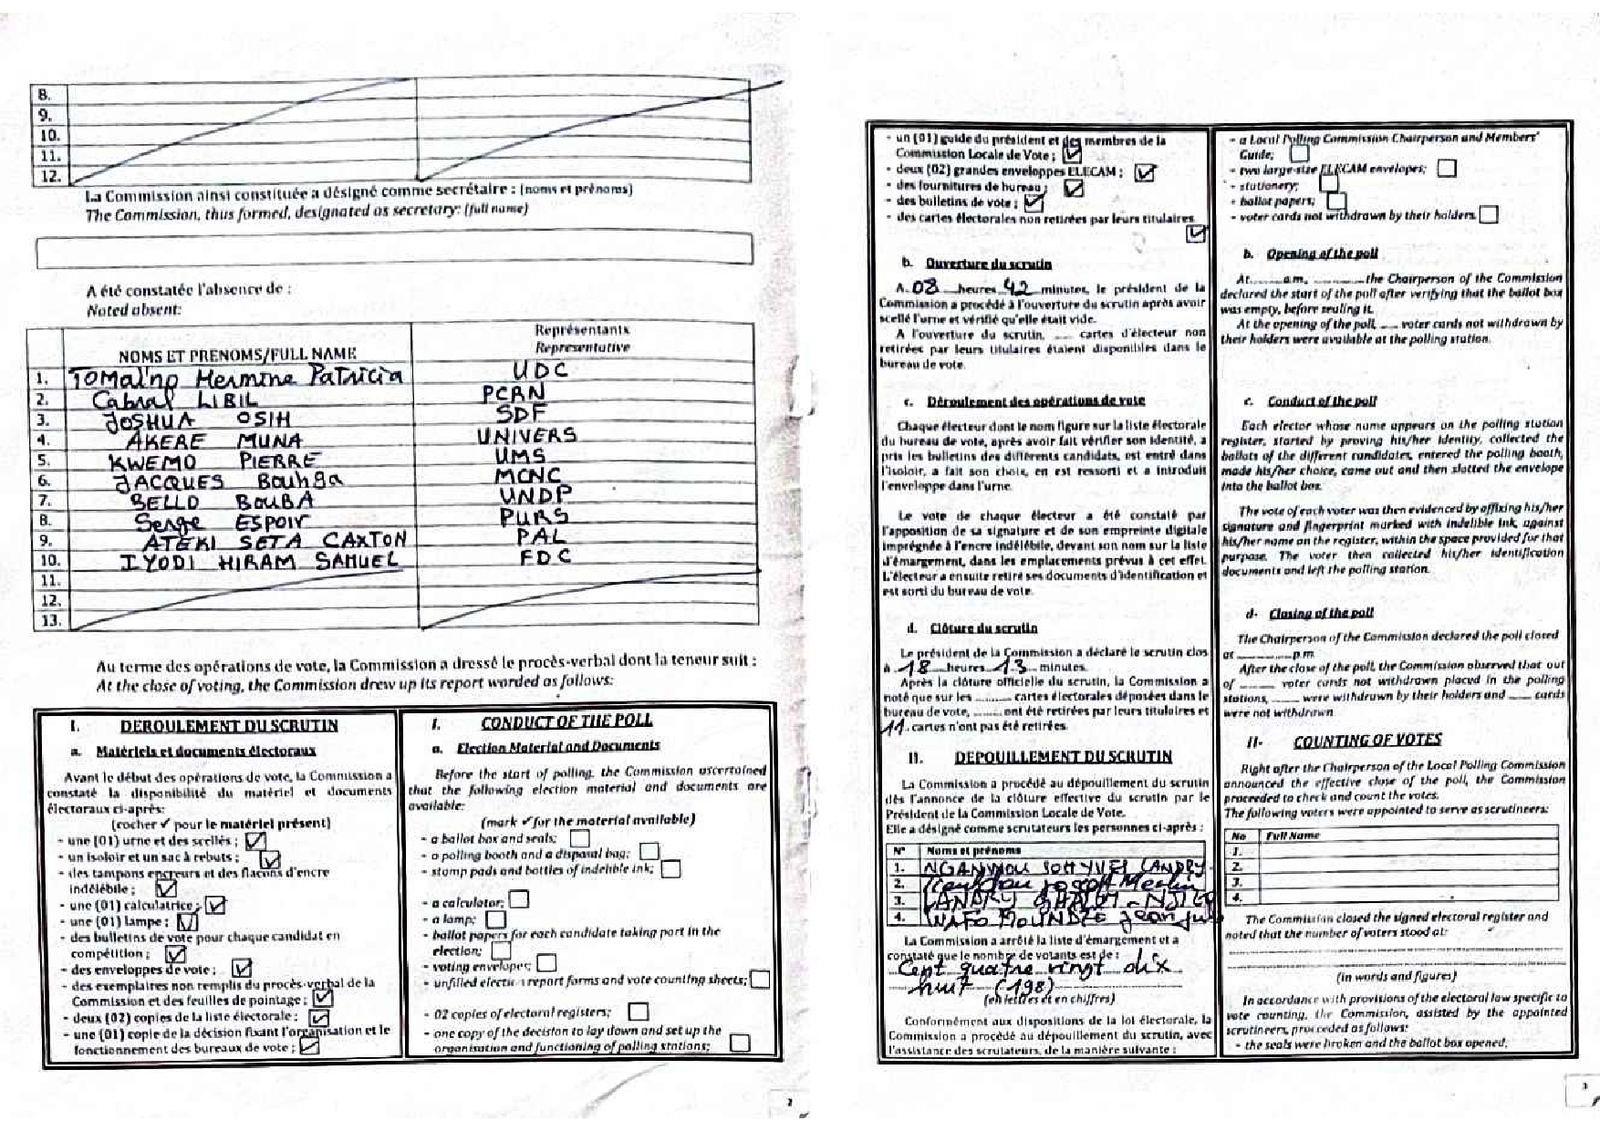 8.
9.
10.
11.
12.
La Commission ainsi constituée a désigné comme secrétaire : (noms et prénoms)
The Commission, thus formed, designated as secretary: (full name)
A été constatée l'absence de :
Noted absent:
NOMS ET PRENOMS/FULL NAME Représentants
Representative
1. TOMAÏNO Hermine Patricia UDC
2. Cabral LIBII PCRN
3. JOSHUA OSIH SDF
4. AKERE MUNA UNIVERS
5. KWEMO PIERRE UMS
6. JACQUES Bouhga MCNC
7. BELLO BOUBA UNDP
8. Serge ESPOIR PURS
9. ATEKI SETA CAXTON PAL
10. IYODI HIRAM SAMUEL FDC
11.
12.
13.
Au terme des opérations de vote, la Commission a dressé le procès-verbal dont la teneur suit :
At the close of voting, the Commission drew up its report worded as follows:
I. DEROULEMENT DU SCRUTIN
a. Matériels et documents électoraux
Avant le début des opérations de vote, la Commission a
constaté la disponibilité du matériel et documents
électoraux ci-après:
(cocher ✓ pour le matériel présent)
- une (01) urne et des scellés ; ☑
- un isoloir et un sac à rebuts ; ☑
- des tampons encreurs et des flacons d'encre
indélébile ; ☑
- une (01) calculatrice ; ☑
- une (01) lampe ; ☑
- des bulletins de vote pour chaque candidat en
compétition ; ☑
- des enveloppes de vote ; ☑
- des exemplaires non remplis du procès-verbal de la
Commission et des feuilles de pointage ; ☑
- deux (02) copies de la liste électorale ; ☑
- une (01) copie de la décision fixant l'organisation et le
fonctionnement des bureaux de vote ; ☑
I. CONDUCT OF THE POLL
a. Election Material and Documents
Before the start of polling, the Commission ascertained
that the following election material and documents are
available:
(mark ✓ for the material available)
- a ballot box and seals; ☐
- a polling booth and a disposal bag; ☐
- stamp pads and bottles of indelible ink; ☐
- a calculator; ☐
- a lamp; ☐
- ballot papers for each candidate taking part in the
election; ☐
- voting envelopes; ☐
- unfilled election report forms and vote counting sheets; ☐
- 02 copies of electoral registers; ☐
- one copy of the decision to lay down and set up the
organisation and functioning of polling stations; ☐
2
- un (01) guide du président et des membres de la
Commission Locale de Vote ; ☑
- deux (02) grandes enveloppes ELECAM ; ☑
- des fournitures de bureau ; ☑
- des bulletins de vote ; ☑
- des cartes électorales non retirées par leurs titulaires
☑
b. Ouverture du scrutin
A 08 heures 42 minutes, le président de la
Commission a procédé à l'ouverture du scrutin après avoir
scellé l'urne et vérifié qu'elle était vide.
A l'ouverture du scrutin, ..... cartes d'électeur non
retirées par leurs titulaires étaient disponibles dans le
bureau de vote.
c. Déroulement des opérations de vote
Chaque électeur dont le nom figure sur la liste électorale
du bureau de vote, après avoir fait vérifier son identité, a
pris les bulletins des différents candidats, est entré dans
l'isoloir, a fait son choix, en est ressorti et a introduit
l'enveloppe dans l'urne.
Le vote de chaque électeur a été constaté par
l'apposition de sa signature et de son empreinte digitale
imprégnée à l'encre indélébile, devant son nom sur la liste
d'émargement, dans les emplacements prévus à cet effet.
L'électeur a ensuite retiré ses documents d'identification et
est sorti du bureau de vote.
d. Clôture du scrutin
Le président de la Commission a déclaré le scrutin clos
à 18 heures 13 minutes.
Après la clôture officielle du scrutin, la Commission a
noté que sur les .......... cartes électorales déposées dans le
bureau de vote, ........ ont été retirées par leurs titulaires et
11 cartes n'ont pas été retirées.
II. DEPOUILLEMENT DU SCRUTIN
La Commission a procédé au dépouillement du scrutin
dès l'annonce de la clôture effective du scrutin par le
Président de la Commission Locale de Vote.
Elle a désigné comme scrutateurs les personnes ci-après :
N° Noms et prénoms
1.
2. Joseph
3. LANDRY
4. WAFO Jean
La Commission a arrêté la liste d'émargement et a
constaté que le nombre de votants est de :
Cent quatre vingt dix
huit (198)
(en lettres et en chiffres)
Conformément aux dispositions de la loi électorale, la
Commission a procédé au dépouillement du scrutin, avec
l'assistance des scrutateurs, de la manière suivante :
- a Local Polling Commission Chairperson and Members'
Guide; ☐
- two large-size ELECAM envelopes; ☐
- stationery; ☐
- ballot papers; ☐
- voter cards not withdrawn by their holders ☐
b. Opening of the poll
At........ a.m, ........ the Chairperson of the Commission
declared the start of the poll after verifying that the ballot box
was empty, before sealing it.
At the opening of the poll, ..... voter cards not withdrawn by
their holders were available at the polling station.
c. Conduct of the poll
Each elector whose name appears on the polling station
register, started by proving his/her identity, collected the
ballots of the different candidates, entered the polling booth,
made his/her choice, came out and then slotted the envelope
into the ballot box.
The vote of each voter was then evidenced by affixing his/her
signature and fingerprint marked with indelible ink, against
his/her name on the register, within the space provided for that
purpose. The voter then collected his/her identification
documents and left the polling station.
d- Closing of the poll
The Chairperson of the Commission declared the poll closed
at ............ p.m
After the close of the poll, the Commission observed that out
of ........ voter cards not withdrawn placed in the polling
stations, ........ were withdrawn by their holders and ..... cards
were not withdrawn
II- COUNTING OF VOTES
Right after the Chairperson of the Local Polling Commission
announced the effective close of the poll, the Commission
proceeded to check and count the votes.
The following voters were appointed to serve as scrutineers:
No Full Name
1.
2.
3.
4.
The Commission closed the signed electoral register and
noted that the number of voters stood at:
(in words and figures)
In accordance with provisions of the electoral law specific to
vote counting, the Commission, assisted by the appointed
scrutineers, proceeded as follows:
- the seals were broken and the ballot box opened;
3